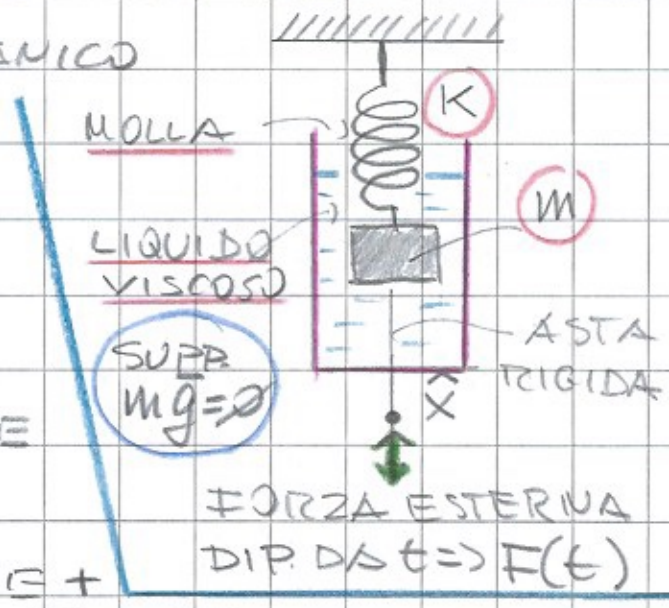 ANICO
MOLLA
K
m
LIQUIDO
VISCOSO
ASTA
RIGIDA
SUPP.
mg=0
X
E
FORZA ESTERNA
DIP. DA t => F(t)
E +